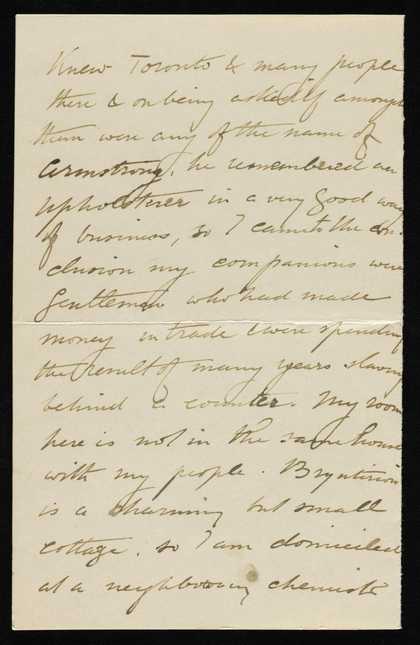 Knew Toronto & many people
there & on being asked if amongst
them were any of the name of
Armstrong, he remembered an
upholsterer in a very good way
of business, so I came to the con-
clusion my companions were
Gentlemen who had made
money in trade & were spending
the result of many years slaving
behind a counter. My room
here is not in the same house
with my people. Bryntirion
is a charming but small
cottage, so I am domiciled
at a neighbouring chemists